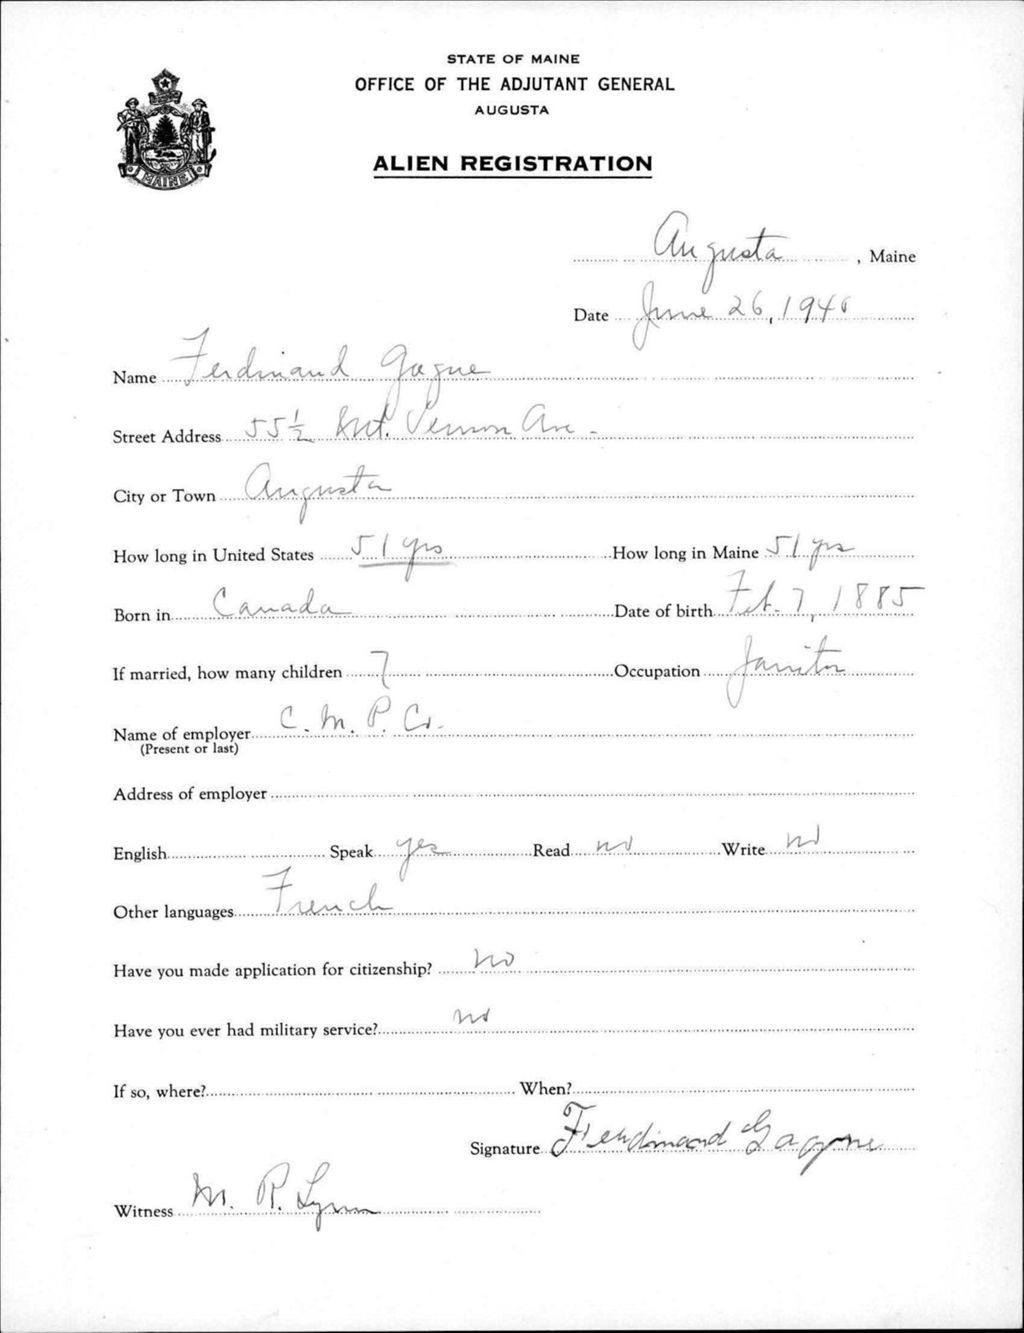 STATE OF MAINE
OFFICE OF THE ADJUTANT GENERAL
AUGUSTA
MAINE
ALIEN REGISTRATION
Augusta, Maine
Date June 26, 1940
Name Ferdinand Gagne
Street Address 55 1/2 Mt. Vernon Ave -
City or Town Augusta
How long in United States 51 yrs How long in Maine 51 yrs
Born in Canada Date of birth Feb. 7, 1885
If married, how many children 7 Occupation Janitor
Name of employer C. M. P. Co.
(Present or last)
Address of employer
English Speak yes Read no Write no
Other languages French
Have you made application for citizenship? no
Have you ever had military service? no
If so, where? When?
Signature Ferdinand Gagne
Witness M. R. Lynn